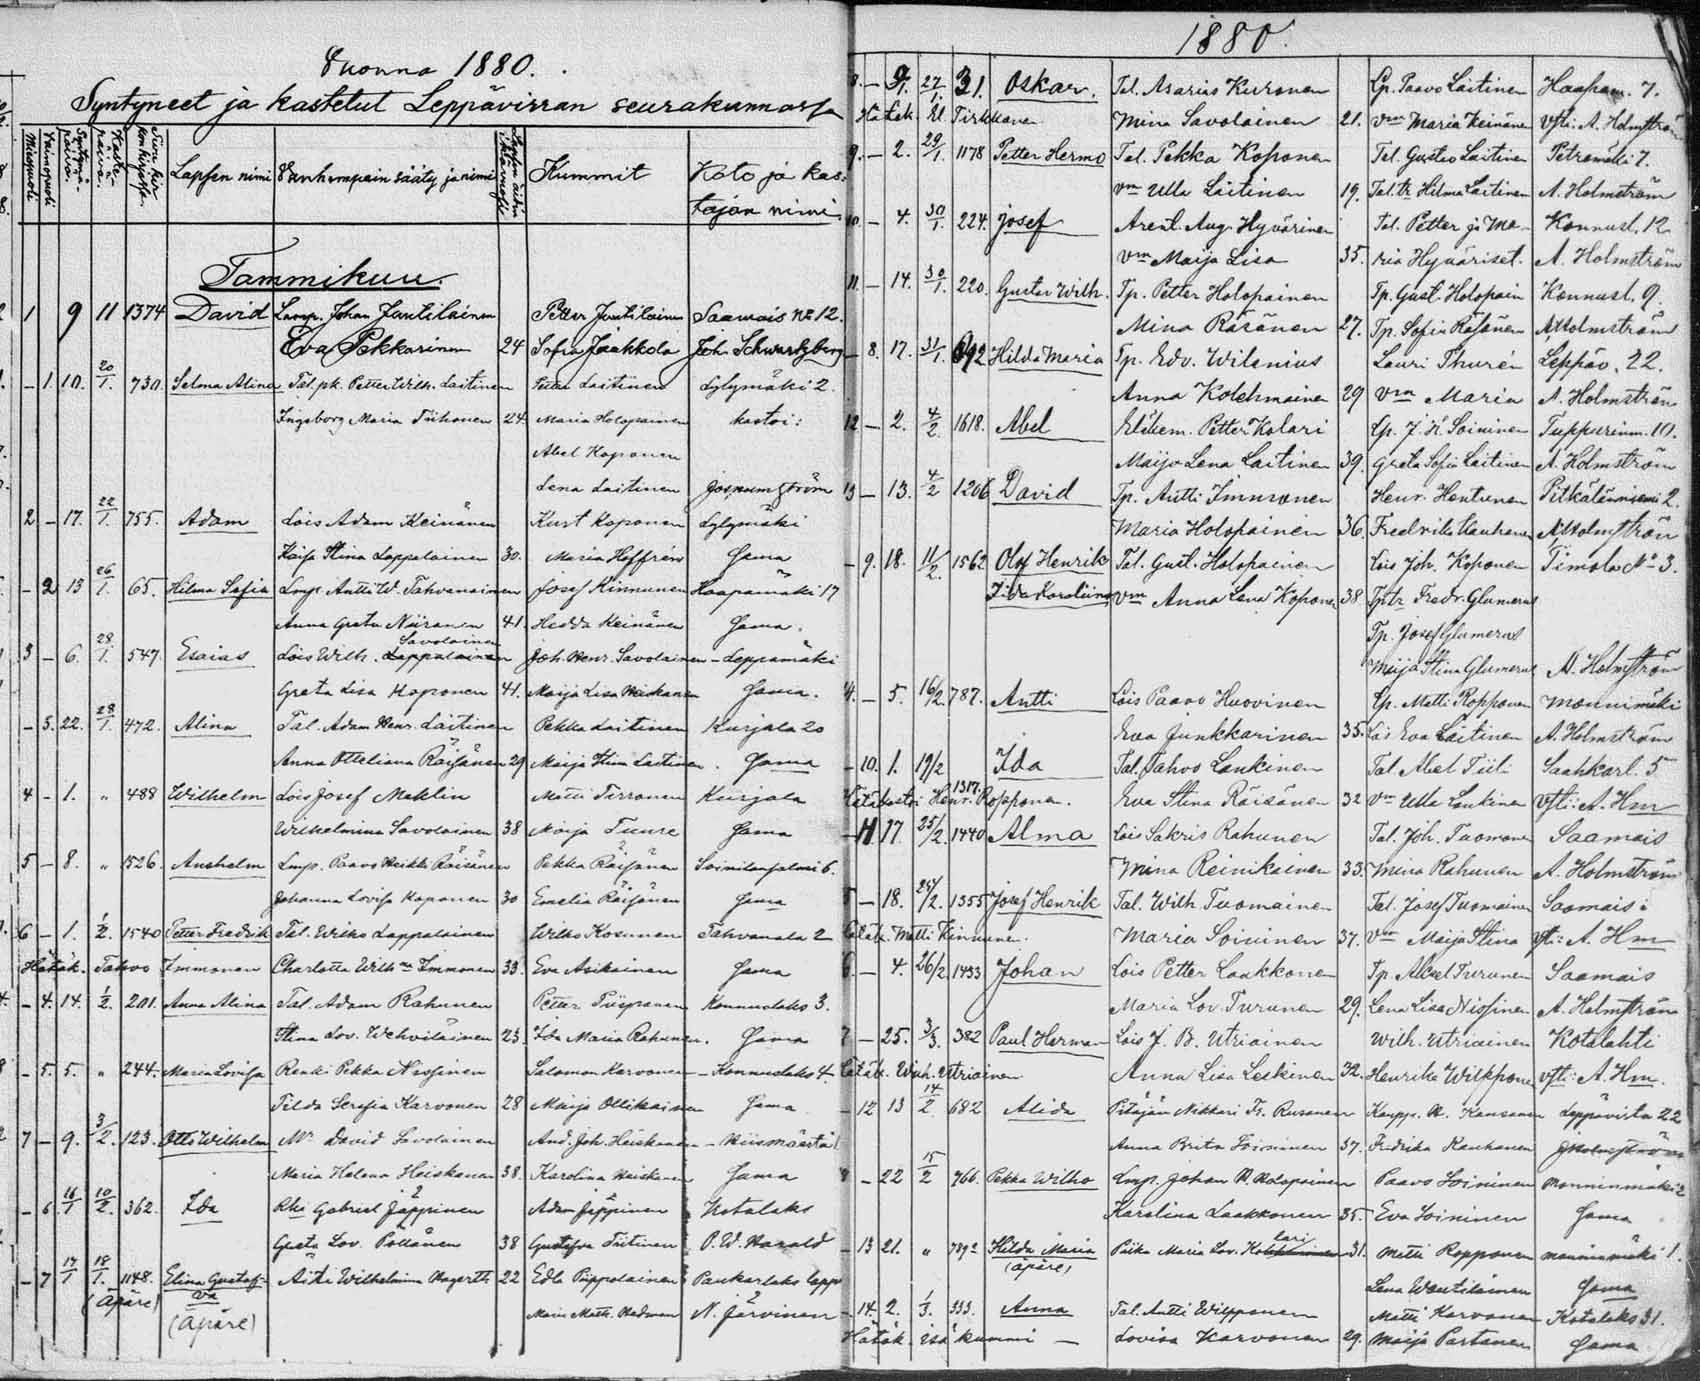 Vuonna 1880.
Syntyneet ja kastetut Leppävirran seurakunnassa
Miespuoli
Vaimopuoli
Syntymä päivä.
Kaste-päivä.
Lapsen nimi Vanhempain sääty ja nimi Kummit Koto ja kas-
tajan nimi
Tammikuu.
1 9 11 1374 David Lamp. Johan Jantilainen Petter Jantilainen Saamais № 12.
Eva Pekkarinen 24 Sofia Jaakkola Joh. Schwartzberg
- 1. 10. 20/1. 730. Selma Alina Tal. pk. Petter Wilh. Laitinen Petter Laitinen Lylymäki 2.
Ingeborg Maria Tiihonen 24. Maria Holopainen kastoi:
Abel Koponen
Lena Laitinen
2 - 17. 22/1. 755. Adam Lois Adam Keinänen Kust Koponen Lylymäki
Kaisa Stina Lappalainen 30. Maria Hoffrén Sama
- 2 13 26/1. 65. Hilma Sofia Lmp. Antti W. Tahvanainen Josef Kinnunen Haapamäki 17
Anna Greta Niiranen 41. Hedda Keinänen Sama.
Savolainen
3 - 6. 28/1. 547. Esaias Lois Wilh. Lappalainen Joh. Henr. Savolainen - Leppämäki
Greta Lisa Koponen 41. Maija Lisa Heiskanen Sama.
- 3. 22. 28/1. 472. Alina Tal. Adam Henr. Laitinen Pekka Laitinen Kurjala 20
Anna Otteliana Räisänen 29 Maija Stina Laitinen. Sama
4 - 1. " 488 Wilhelm Lois Josef Meklin Matti Tirronen Kurjala
Wilhelmina Savolainen 38 Maija Tuure Sama
5 - 8. " 1526. Anshelm Lmp. Paavo Heikki Räisänen Pekka Räisänen Soinilansalmi 6.
Johanna Lovisa Koponen 30 Emelia Räisänen Sama
6 - 1. 1/2. 1540 Petter Fredrik Tal. Wilho Lappalainen Wilho Kosunen Tahvanala 2
Hätäk. Tahvo Immonen Charlotta Wilh.na Immonen 33. Eva Asikainen Sama
- 4. 14. 1/2. 201. Anna Alina Tal. Adam Rahunen Petter Piispanen Konnuslaks 3.
Stina Lov. Wehviläinen 23. Ida Maria Rahunen. Sama
- 5. 5. " 244. Maria Lovisa Renki Pekka Nissinen Salomon Karvonen - Konnuslaks 4.
Tilda Serafia Karvonen 28 Maija Ollikainen Sama
7 - 9. 3/2. 123. Otto Wilhelm Mr David Savolainen And. Joh. Heiskanen - Niismäärtä
Maria Helena Heiskanen 38. Karolina Heiskanen Sama
- 6. 16/1 10/2. 362. Ida Rhi Gabriel Jäppinen Adam Jäppinen Kotalaks
Greta Lov. Pöllänen 38 Gustava Tiitinen P. W. Harald
- 7 17/1 18/1. 1148. Elina Gustaf- Äiti Wilhelmina Hagerth 22 Edla Piippolainen Paukarlaks lapp
(Äpäre) va
(Äpäre) Maria Math. Hedman N. Järvinen
1880.
8. - 9. 27/1. 31. Oskar. Tal. Asarias Kuronen Lp. Paavo Laitinen Haapam. 7.
Hä Lek. kl. Tirkkonen Mina Savolainen 21. vm Maria Keinänen Vsti: A. Holmström
9. - 2. 29/1. 1178 Petter Hermo Tal. Pekka Koponen Tal. Gustav Laitinen Petromäki 7.
vm Ulla Laitinen 19. Tal. tr. Hilma Laitinen A. Holmström
10 - 4. 30/1. 224. Josef Arent. Aug. Hyvärinen Tal. Petter ja Ma- Konnusl. 12
vm Maija Lisa 35. ria Hyväriset. A. Holmström
11. - 14. 30/1. 220. Gustav Wilh. Tp. Petter Holopainen Tp. Gust. Holopain Konnusl. 9.
Mina Räsänen 27. Tp. Sofia Räsänen A. Holmström
- 8. 17. 31/1. 692 Hilda Maria Tp. Edv. Wilenius Lauri Thurén Leppäv. 22.
Anna Kolehmainen 29 vm Maria A. Holmström
12 - 2. 4/2. 1618. Abel Petter Kolari Lp. J. H. Soininen Tuppurinm. 10.
Maija Lena Laitinen 39. Greta Sofia Laitinen A. Holmström
13 - 13. 4/2 1206 David Tp. Antti Immonen Henr. Hentunen Pitkälänniemi 2.
Maria Holopainen 36. Fredrika Kauhanen A. Holmström
- 9. 18. 11/2. 1562 Olof Henrik Tal. Gust. Holopainen Lois Joh. Koponen Timola № 3.
Ida Karoliina vm Anna Lena Koponen 38. Tptr Fredr. Glumerus
Tp. Josef Glumerus
Maija Stina Glumerus A. Holmström
- 5. 16/2. 787. Antti Lois Paavo Huovinen Lp. Matti Ropponen Mannimäki
Eva Junkkarinen 35. Lois Eva Laitinen A. Holmström
- 10. 1. 19/2 1317. Ida Tal. Tahvo Lankinen Tal. Abel Tiili Saahkarl. 5
Hätäkastoi Henr. Ropponen. Eva Stina Räisänen 32 vm Ulla Lankinen Vsti: A. Hm
- 11 17. 25/2. 1440 Alma Lois Sakris Rahunen Tal. Joh. Tuomonen Saamais
Mina Reinikainen 33. Mina Rahunen A. Holmström
5 - 18. 25/2. 1355 Josef Henrik Tal. Wilh. Tuomainen Tal. Josef Tuomainen Saamais
Hätäk. Matti Kinnunen. Maria Soininen 37. vm Maija Stina Vsti: A. Hm
6. - 4. 26/2. 1433 Johan Lois Petter Laakkonen Tp Abel Turunen Saamais
Maria Lov. Turunen 29. Lena Lisa Nissinen A. Holmström
7 - 25. 3/3. 382 Paul Herman Lois J. B. Utriainen Wilh. Utriainen Kotalahti
Hätäk. Wilh. Utriainen Anna Lisa Leskinen 32. Henrika Wilkponen Vsti: A. Hm.
- 12 13 14/2 682 Alida Pitäjän Nikkari Fr. Rusanen Kaupp. A. Kansanen Leppävirta 22
Anna Brita Soininen 37. Fredrika Kauhanen Holmström
8 - 22 15/2 766. Pekka Wilho Lmp. Johan A. Holopainen Paavo Soininen Manninmäki 2
Karolina Laakkonen 35. Eva Soininen Sama
lari
- 13 21. " 789 Hilda Maria Piika Maria Lov. Kolehmainen 31. Matti Ropponen Manninmäki 1.
(äpäre) Lena Wentiläinen Sama
- 14. 2. 1/3. 333. Anna Tal. Antti Wilpponen Matti Karvonen Kotalaks 31.
Hätäk. isä kummi - Lovisa Karvonen 29. Maija Partanen Sama